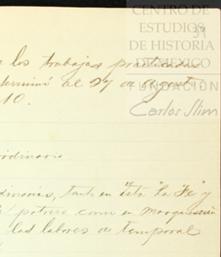 CENTRO DE
ESTUDIOS
DE HISTORIA
DE MÉXICO
FUNDACIÓN
Carlos Slim
39
los trabajos practicados
terminó el 27 de Agosto
10.
ordinario
dinarios, tanto en "La Fe" y
potrero como en
las labores de temporal